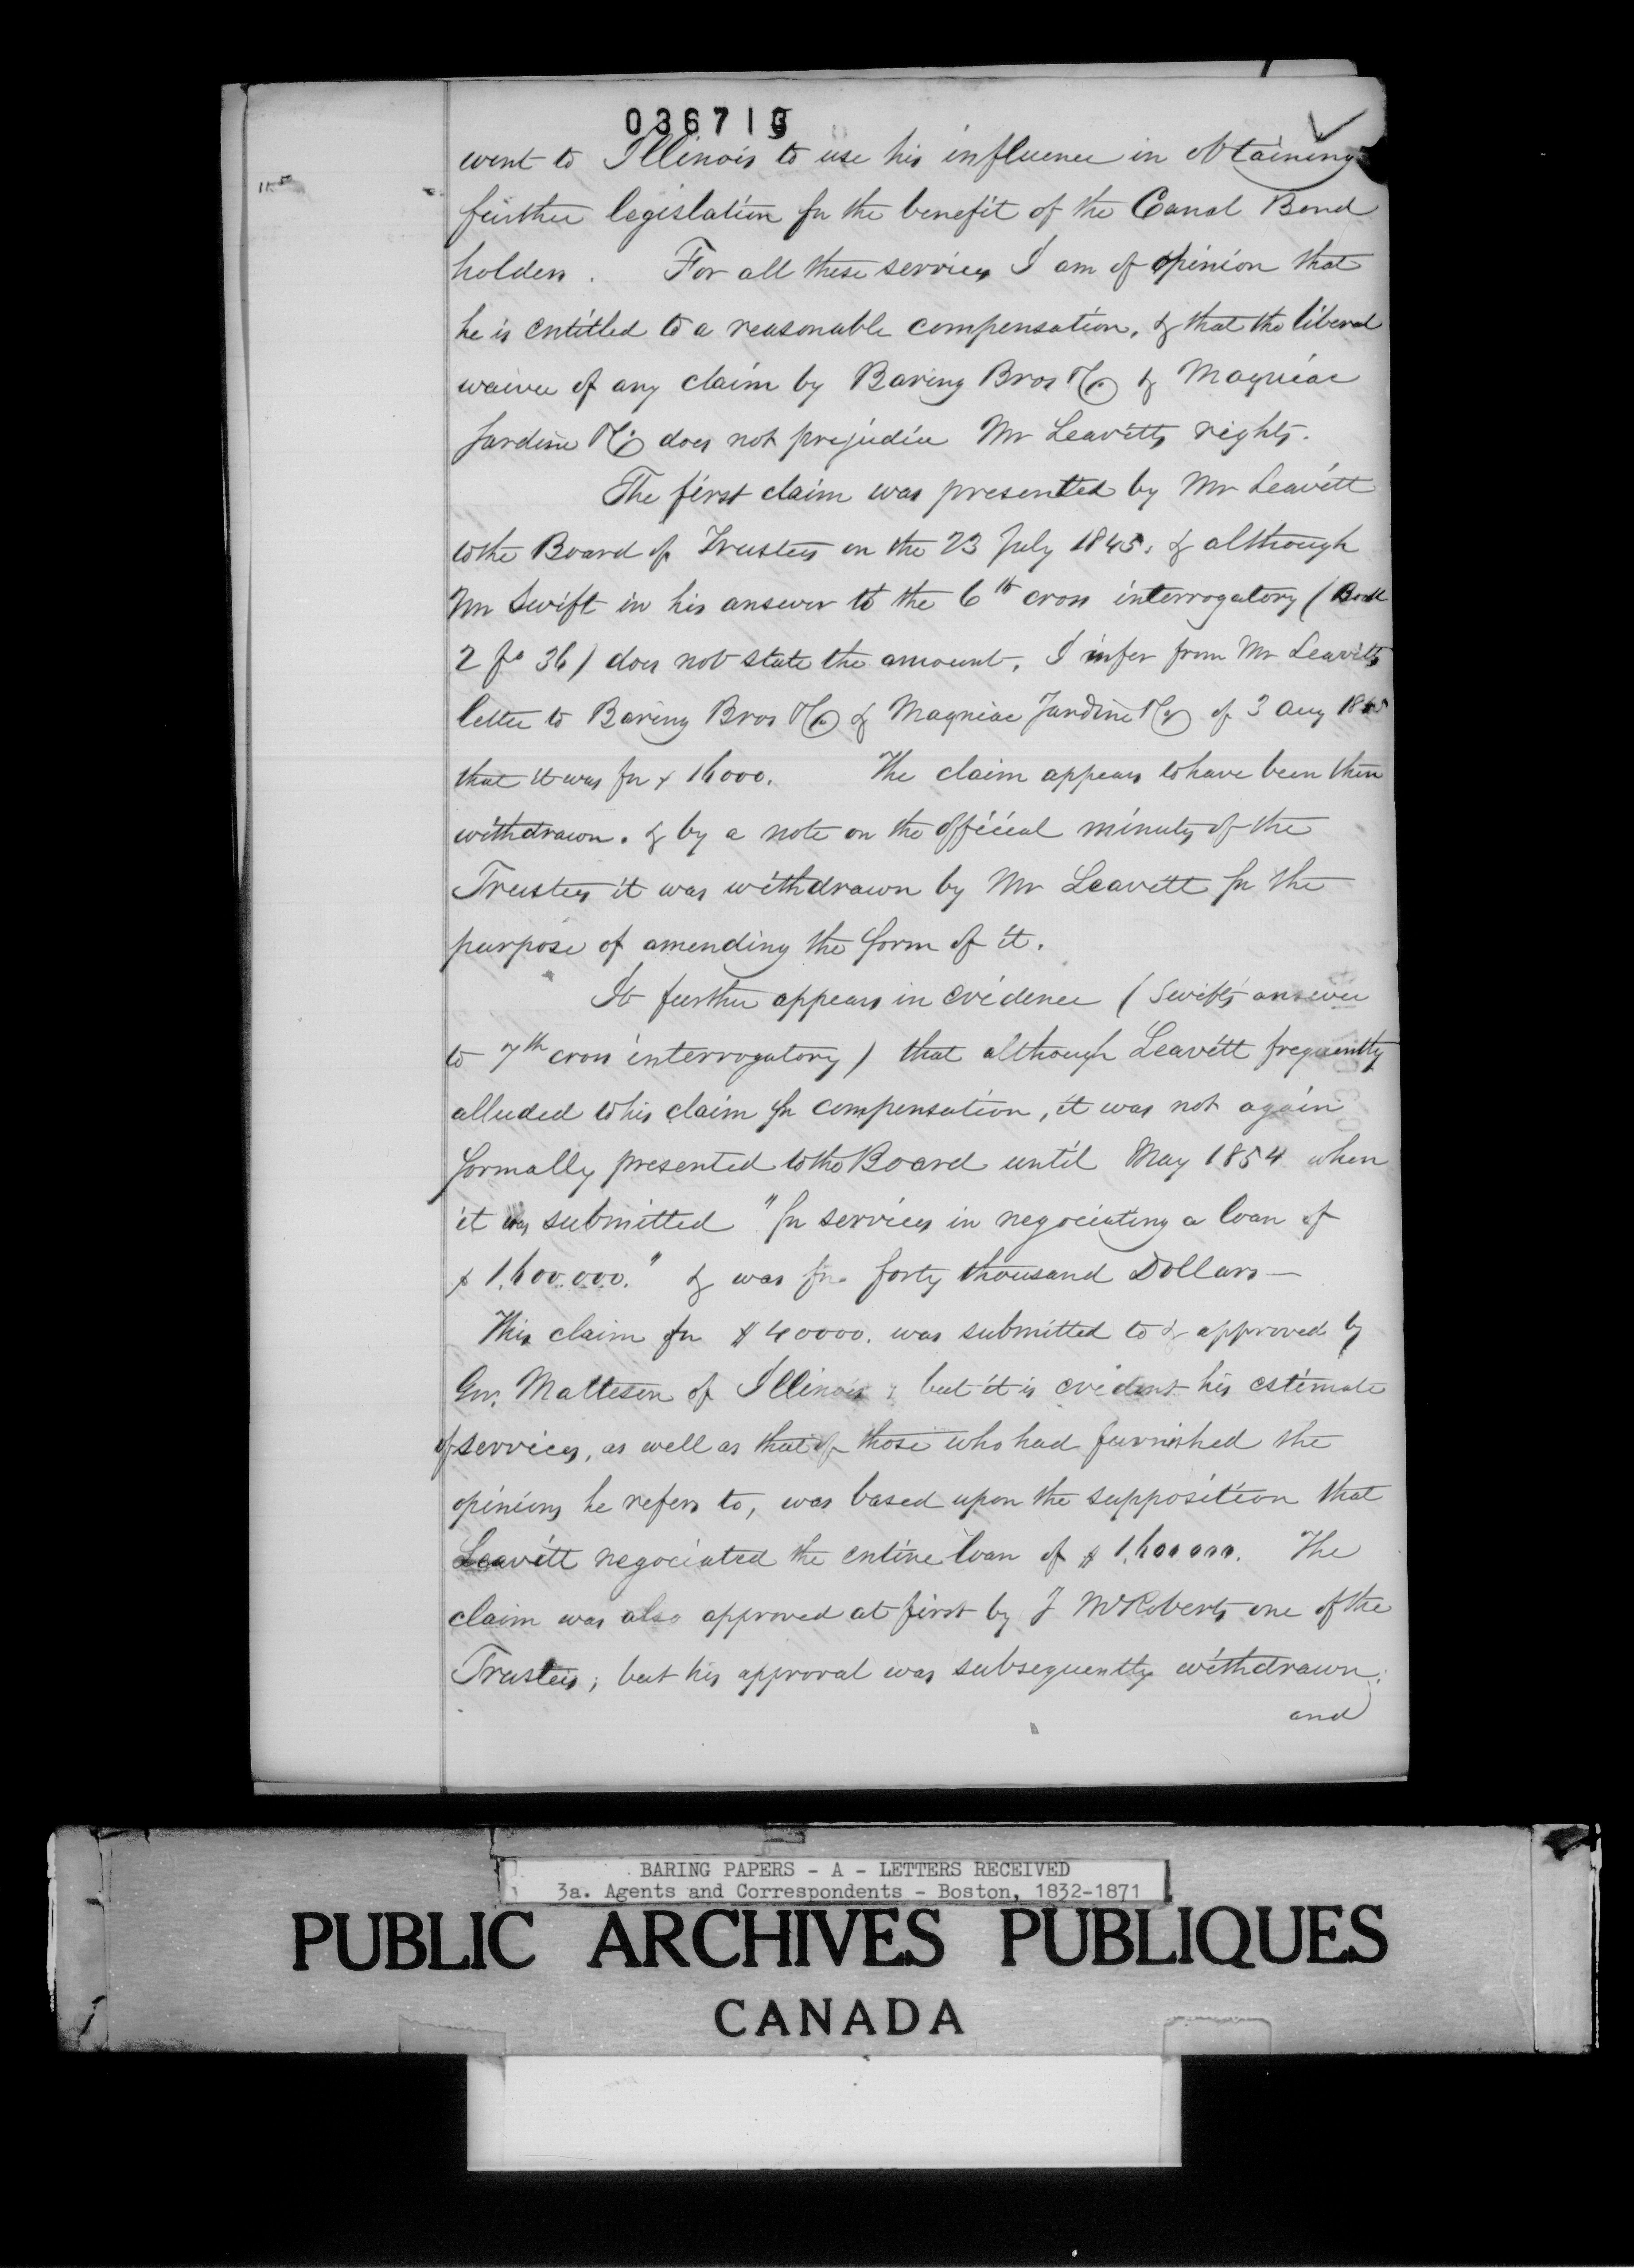 036713
went to Illinois to use his influence in obtaining
further legislation for the benefit of the Canal Bond
holders. For all these services I am of opinion that
he is entitled to a reasonable compensation, & that the liberal
waiver of any claim by Baring Bros & Co & Magniac
Jardine & Co does not prejudice Mr Leavitts rights.
The first claim was presented by Mr Leavitt
to the Board of Trustees on the 23 July 1845, & although
Mr Swift in his answer to the 6th cross interrogatory (Book
2 fo 36) does not state the amount, I infer from Mr Leavitts
letter to Baring Bros & Co & Magniac Jardine & Co of 3 Aug 1845
that it was for $ 16000. The claim appears to have been then
withdrawn. & by a note on the official minutes of the
Trustees it was withdrawn by Mr Leavitt for the
purpose of amending the form of it.
It further appears in evidence (Swift's answer
to 7th cross interrogatory) that although Leavitt frequently
alluded to his claim for compensation, it was not again
formally presented to the Board until May 1854 when
it was submitted "for services in negociating a loan of
$ 1.600.000." & was for forty thousand Dollars—
This claim for $ 40000. was submitted to & approved by
Gov. Matteson of Illinois; but it is evident his estimate
of services, as well as that of those who had furnished the
opinions he refers to, was based upon the supposition that
Leavitt negociated the entire loan of $ 1.600000. The
claim was also approved at first by J McRoberts one of the
Trustees; but his approval was subsequently withdrawn;
and
BARING PAPERS - A - LETTERS RECEIVED
3a. Agents and Correspondents - Boston, 1832-1871
PUBLIC ARCHIVES PUBLIQUES
CANADA